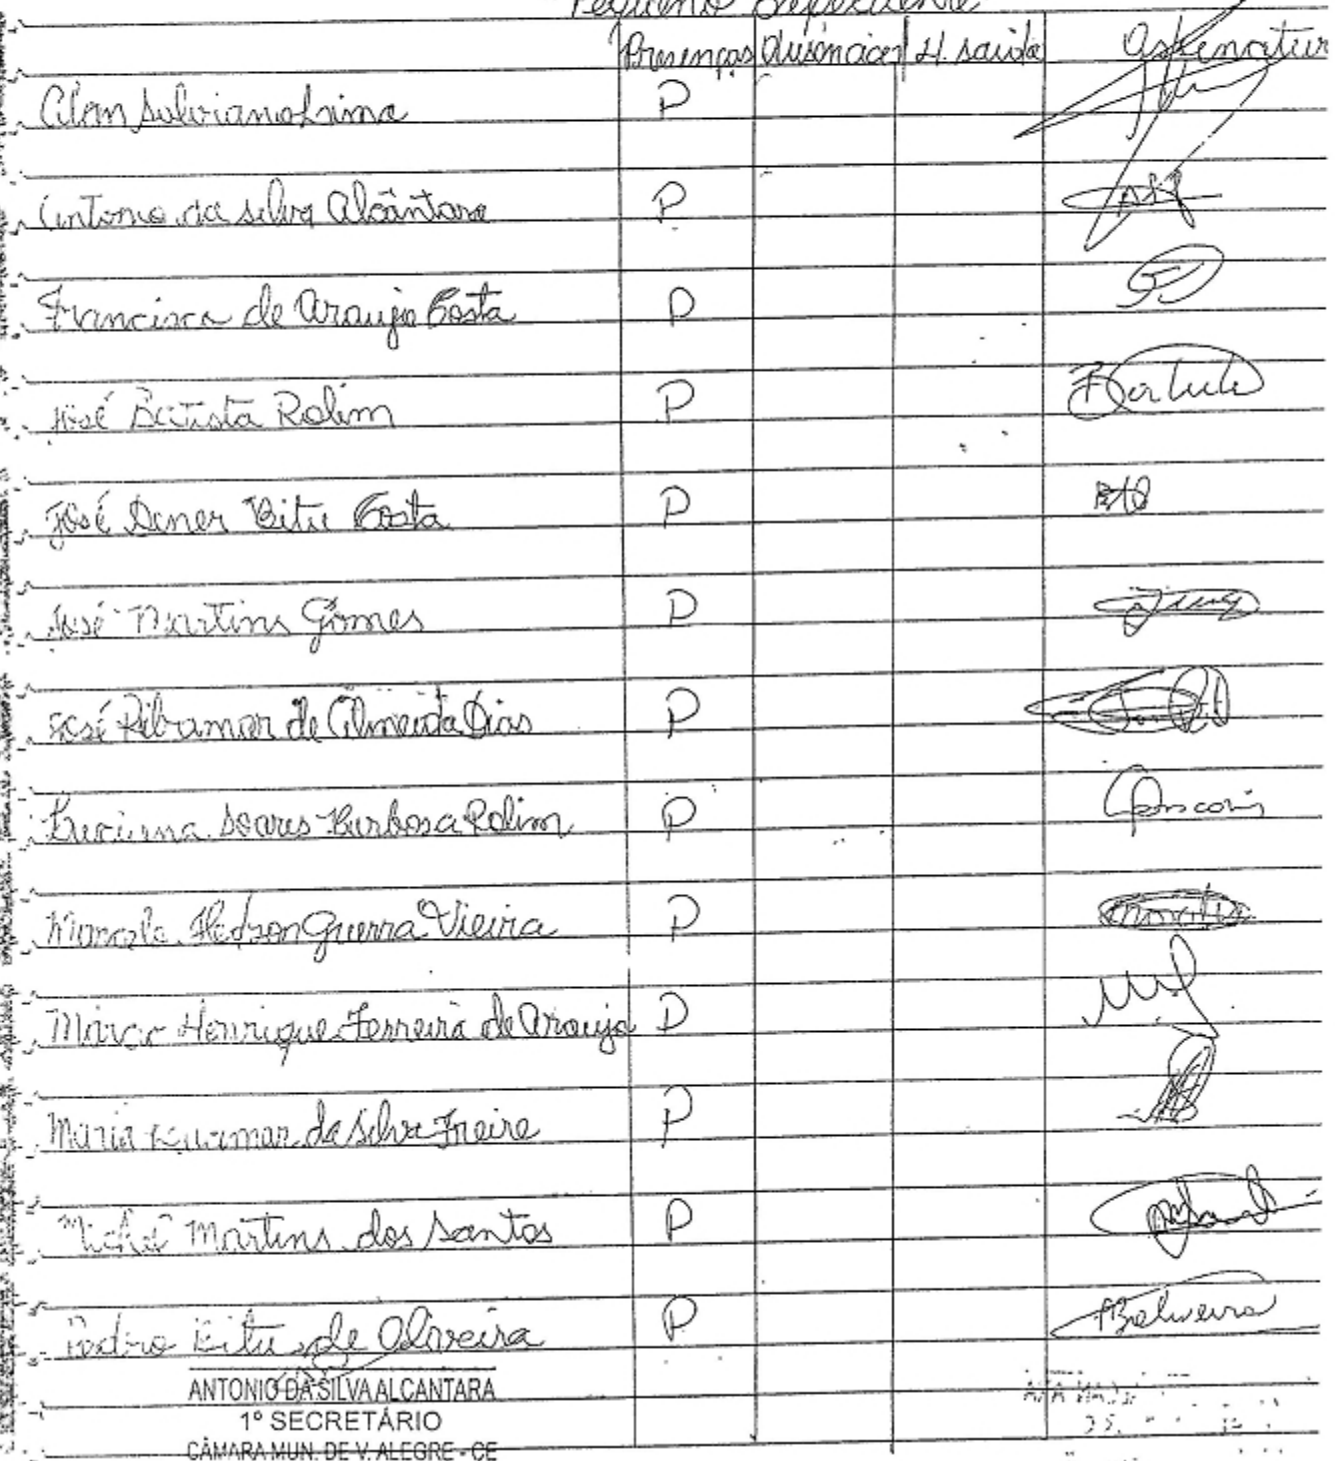 Pequeno Expediente
Presenças Ausências H. saída assinatur
Alan Salviano Lima P
Antonio da Silva Alcântara P
Francisca de Araujo Costa P
José Batista Rolim P
José Dener Bitu Costa P
José Martins Gomes P
José Ribamar de Almeida Dias P
Luciana Soares Barbosa Rolim P
Marcelo Hedson Guerra Vieira P
Márcio Henrique Ferreira de Araujo P
Maria da Silva Freire P
Michel Martins dos Santos P
Pedro Bitu de Oliveira P
ANTONIO DA SILVA ALCANTARA
1º SECRETÁRIO
CÂMARA MUN. DE V. ALEGRE - CE